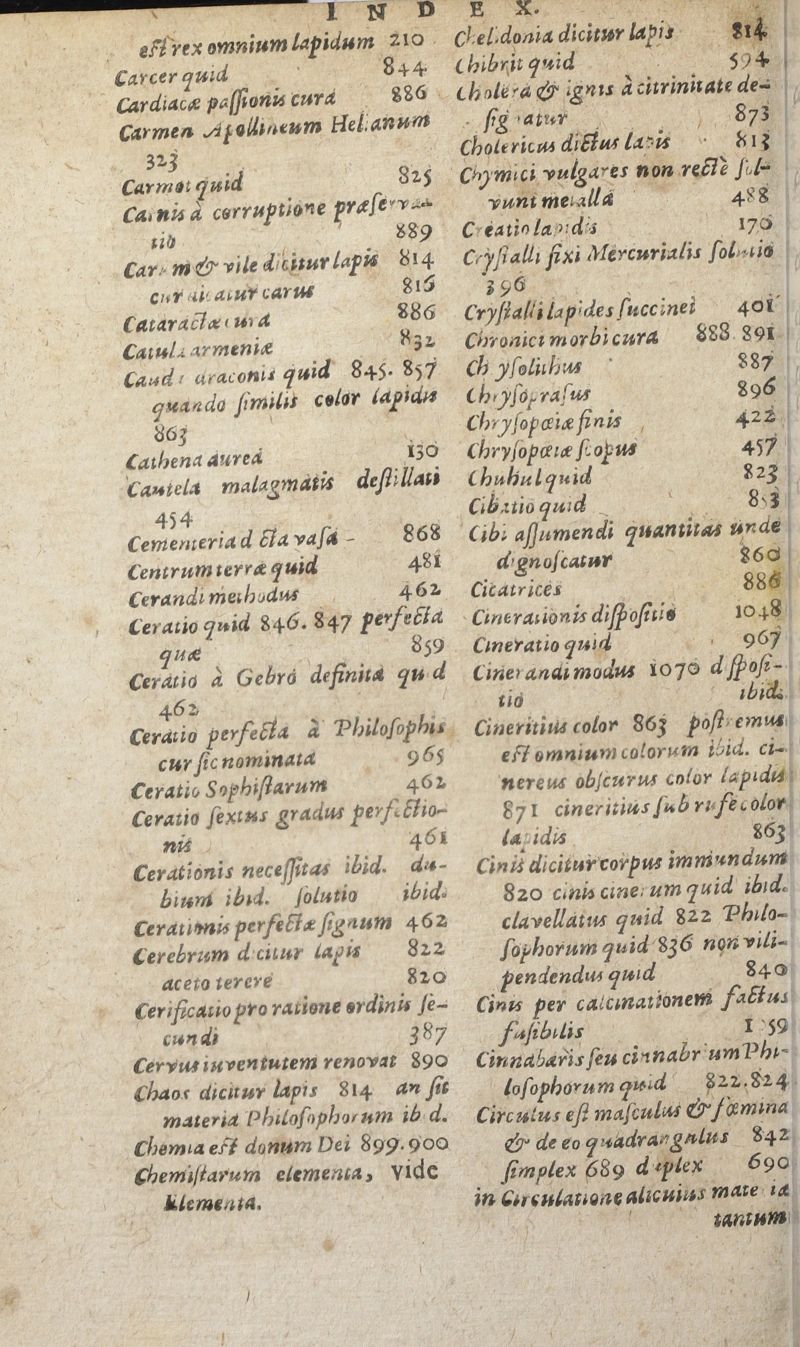 INDEX.
est rex omnium lapidum 210
Carcer quid 844
Cardiacæ passionis cura 886
Carmen Apollineum Helianum
323
Carmot quid 825
Carnis à corruptione præserva-
tio 889
Carum & vile dicitur lapis 814
cur dicatur carus 816
Cataractæ cura 886
Catulæ armeniæ 832
Cauda draconis quid 845. 857
quando similis color lapidis
863
Cathena aurea 130
Cautela malagmatis destillati
454
Cementeria d cta vasa - 868
Centrum terræ quid 481
Cerandi methodus 462
Ceratio quid 846. 847 perfecta
quæ 859
Ceratio à Gebro definita qu d
462
Ceratio perfecta à Philosophis
cur sic nominata 965
Ceratio Sophistarum 462
Ceratio sextus gradus perfectio-
nis 461
Cerationis necessitas ibid. du-
bium ibid. solutio ibid.
Cerationis perfectæ signum 462
Cerebrum dicitur lapis 822
aceto terere 820
Cerificatio pro ratione ordinis se-
cundi 387
Cervus iuventutem renovat 890
Chaos dicitur lapis 814 an sit
materia Philosophorum ib d.
Chemia est donum Dei 899. 900
Chemistarum elementa, vide
Elementa.
Chelidonia dicitur lapis 814
Chibrit quid 594
Cholera & ignis à citrinitate de-
signatur 873
Cholericus dictus lapis 813
Chymici vulgares non recte sol-
vunt metalla 488
Creatio lapidis 170
Crystalli fixi Mercurialis solutio
396
Crystalli lapides succinei 401
Chronici morbi cura 888. 891
Ch ysolithus 887
Chrysoprasus 896
Chrysopœiæ finis 422
Chrysopœiæ scopus 457
Chuhul quid 823
Cibatio quid
Cibi assumendi quantitas unde
dignoscatur 860
Cicatrices 886
Cinerationis dispositio 1048
Cineratio quid 967
Cinerandi modus 1070 disposi-
tio ibid.
Cineritius color 863 postremus
est omnium colorum ibid. ci-
nereus obscurus color lapidis
871 cineritius sub rufe color
lapidis 863
Cinis dicitur corpus immundum
820 cinis cinerum quid ibid.
clavellatus quid 822 Philo-
sophorum quid 836 non vili-
pendendus quid 840
Cinis per calcinationem factus
fusibilis
Cinnabaris seu cinnabrium Phi-
losophorum quid 822. 824
Circulus est masculus & fœmina
& de eo quadrangulus 842
simplex 689 duplex 690
in Circulatione alicuius mate iæ
tantum